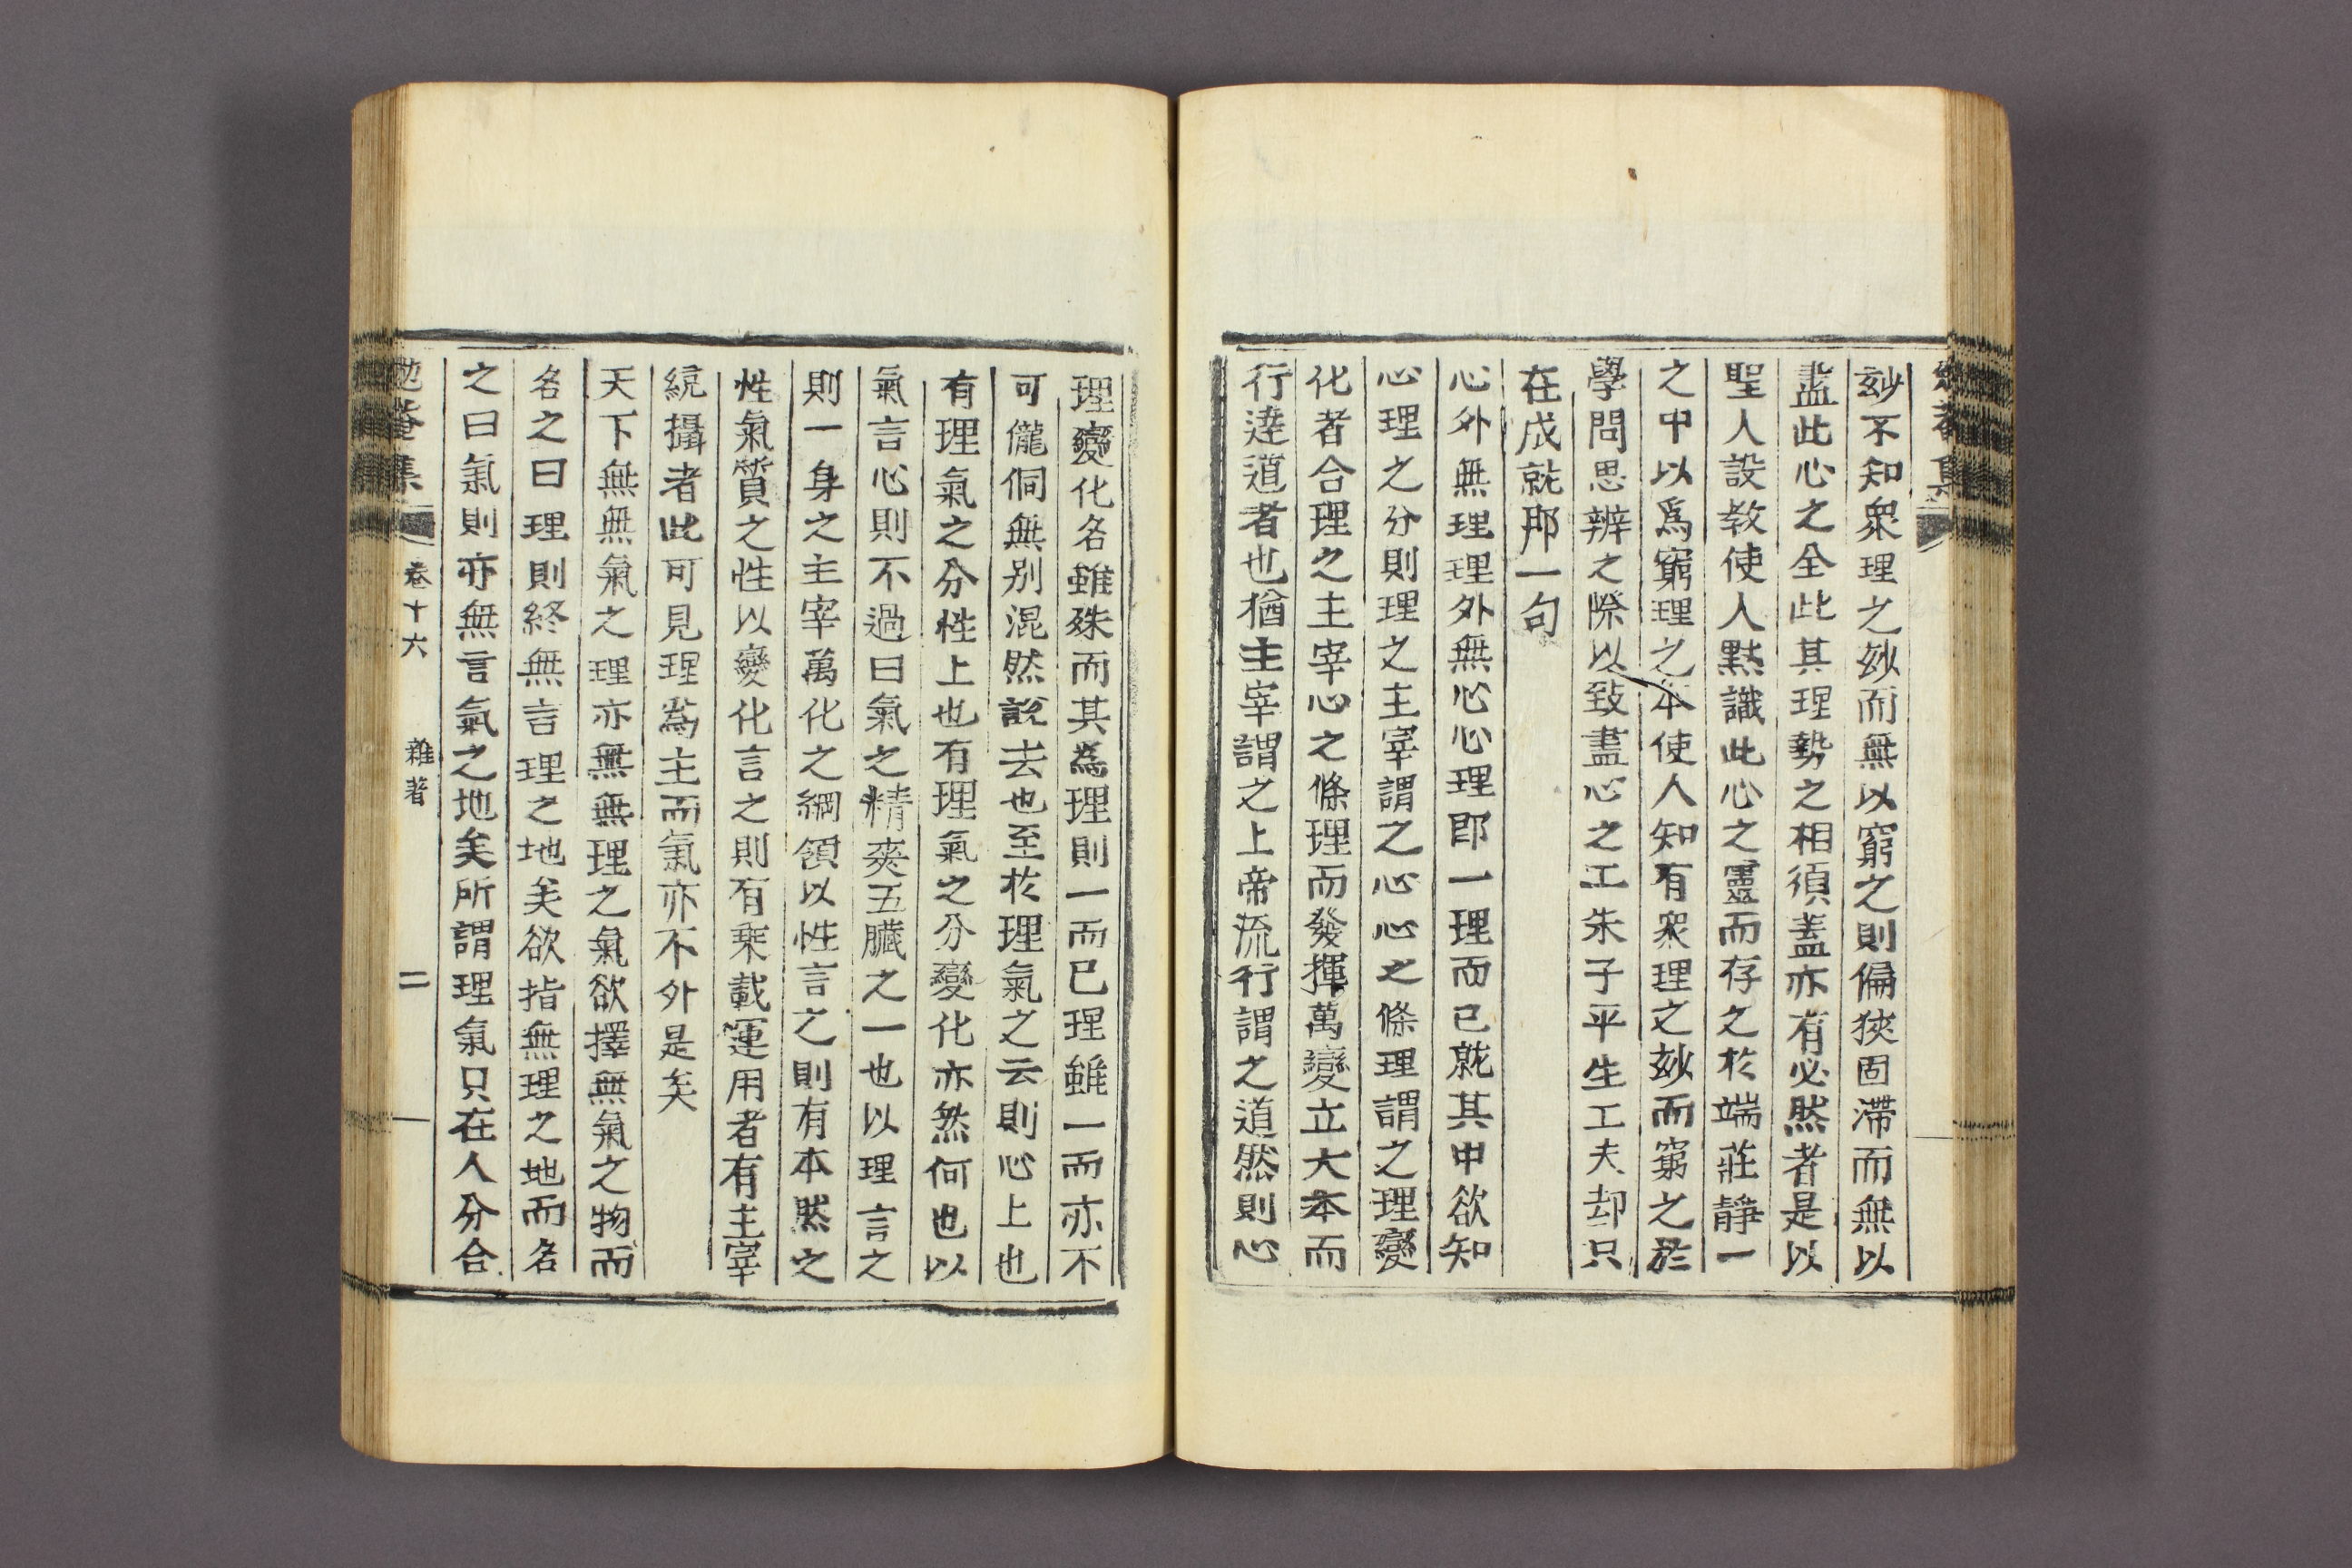 玅不知衆理之玅而無以窮之則偏狹固滯而無以
盡此心之全此其理勢之相須蓋亦有必然者是以
聖人設敎使人默識此心之靈而存之於端莊靜一
之中以爲窮理之本使人知有衆理之玅而窮之於
學問思辨之際以致盡心之工朱子平生工夫却只
在成就那一句
心外無理理外無心心理卽一理而已就其中欲知
心理之分則理之主宰謂之心心之條理謂之理變
化者合理之主宰心之條理而發揮萬變立大本而
行達道者也猶主宰謂之上帝流行謂之道然則心
理變化名雖殊而其爲理則一而已理雖一而亦不
可儱侗無别混然說去也至於理氣之云則心上也
有理氣之分性上也有理氣之分變化亦然何也以
氣言心則不過曰氣之精爽五臟之一也以理言之
則一身之主宰萬化之綱領以性言之則有本然之
性氣質之性以變化言之則有乘載運用者有主宰
統攝者此可見理爲主而氣亦不外是矣
天下無無氣之理亦無無理之氣欲擇無氣之物而
名之曰理則終無言理之地矣欲指無理之地而名
之曰氣則亦無言氣之地矣所謂理氣只在人分合
勉菴集 卷十六 雜著 二